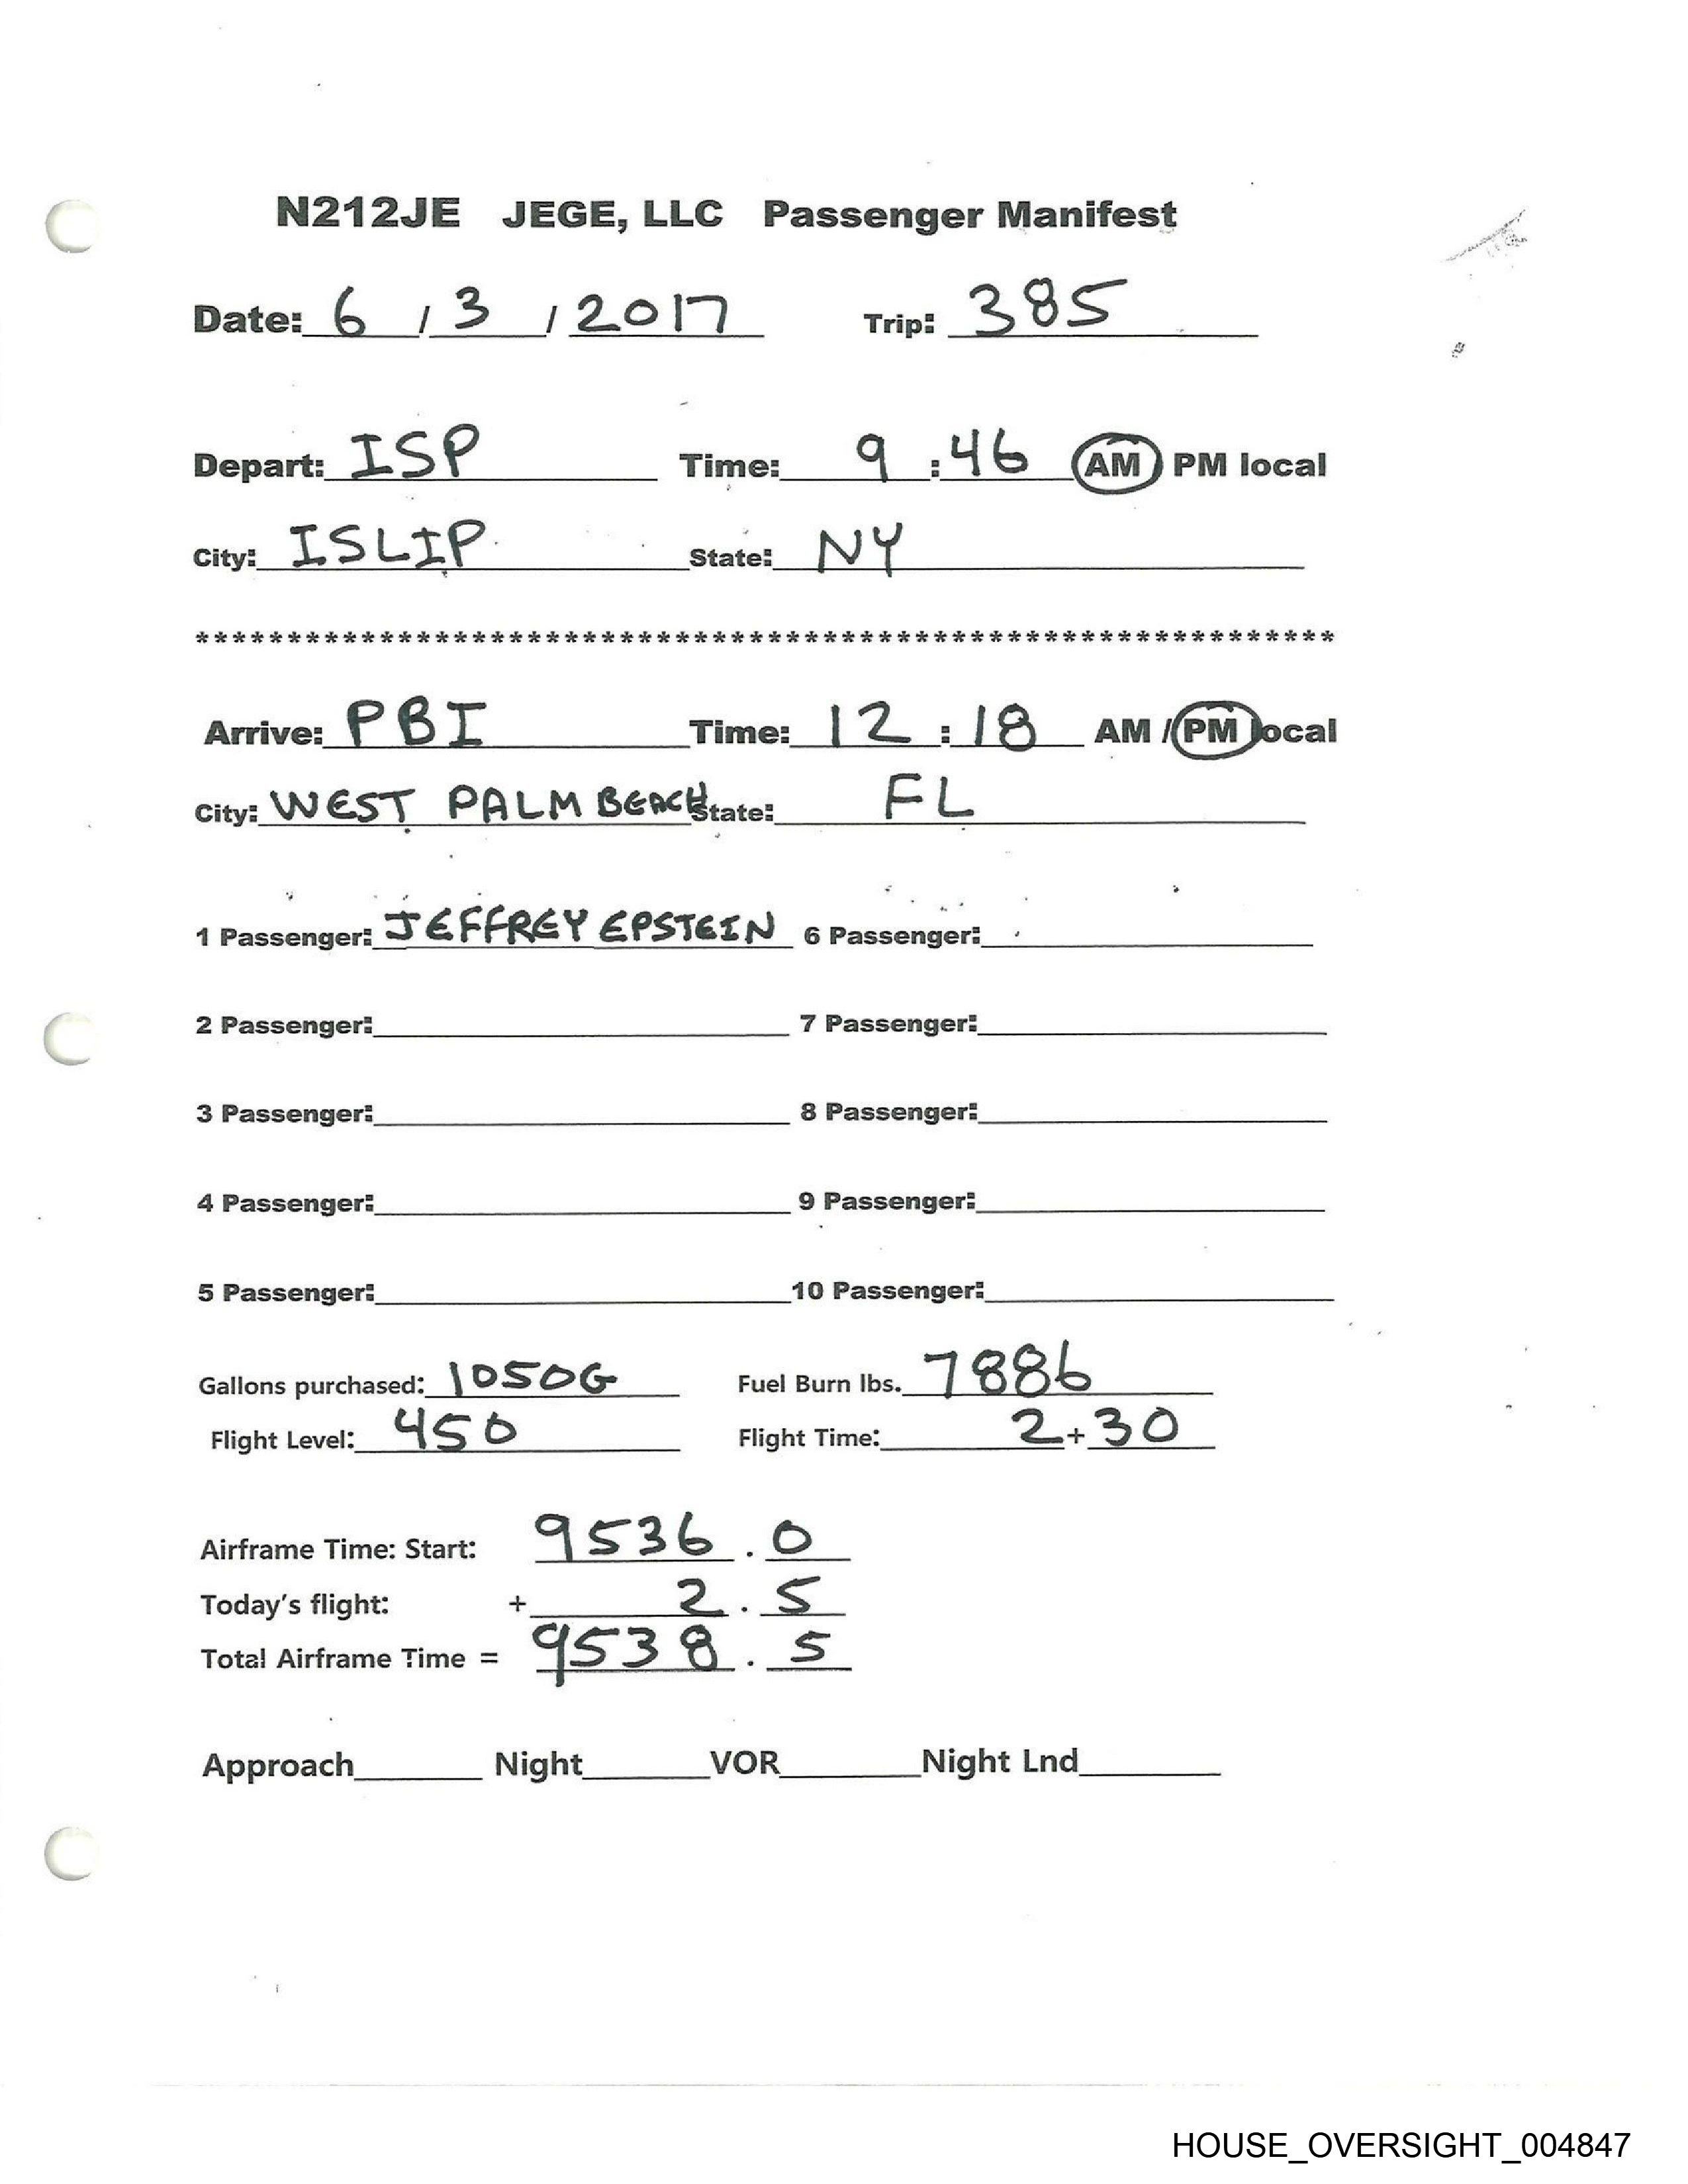 N212JE JEGE, LLC Passenger Manifest
Date: 6 / 3 / 2017 Trip: 385
Depart: ISP Time: 9 : 46 AM PM local
City: ISLIP State: NY
*****************************************************************
Arrive: PBI Time: 12 : 18 AM / PM local
City: WEST PALM BEACH State: FL
1 Passenger: JEFFREY EPSTEIN 6 Passenger:
2 Passenger: 7 Passenger:
3 Passenger: 8 Passenger:
4 Passenger: 9 Passenger:
5 Passenger: 10 Passenger:
Gallons purchased: 1050G Fuel Burn lbs. 7886
Flight Level: 450 Flight Time: 2 + 30
Airframe Time: Start: 9536 . 0
Today's flight: + 2 . 5
Total Airframe Time = 9538 . 5
Approach Night VOR Night Lnd
HOUSE_OVERSIGHT_004847